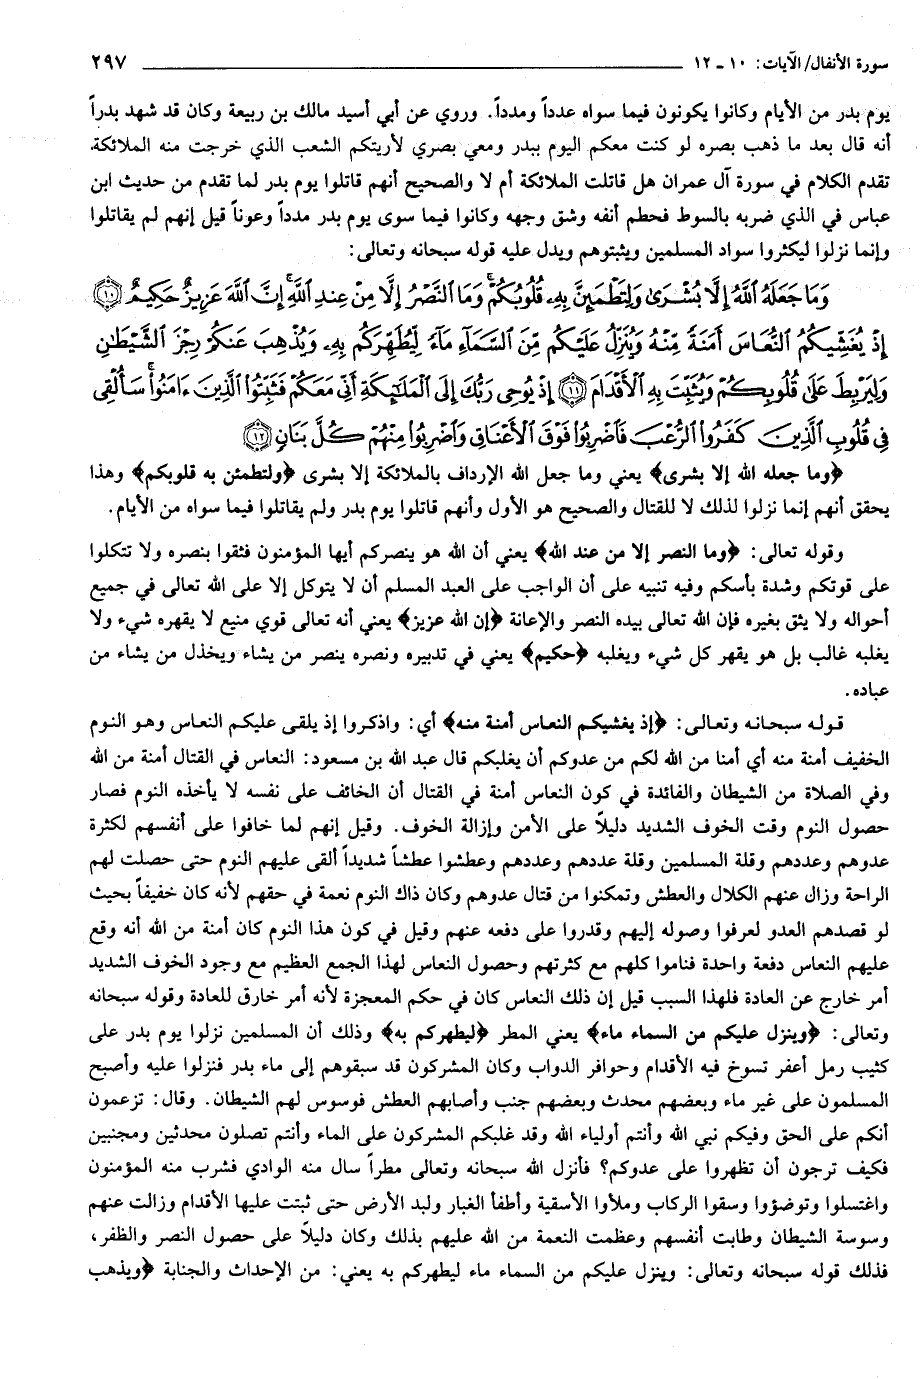 سورة الأنفال/ الآيات: ١٠ ـ ١٢ ٢٩٧
يوم بدر من الأيام وكانوا يكونون فيما سواه عدداً ومدداً. وروي عن أبي أسيد مالك بن ربيعة وكان قد شهد بدراً
أنه قال بعد ما ذهب بصره لو كنت معكم اليوم ببدر ومعي بصري لأريتكم الشعب الذي خرجت منه الملائكة.
تقدم الكلام في سورة آل عمران هل قاتلت الملائكة أم لا والصحيح أنهم قاتلوا يوم بدر لما تقدم من حديث ابن
عباس في الذي ضربه بالسوط فحطم أنفه وشق وجهه وكانوا فيما سوى يوم بدر مدداً وعوناً قيل إنهم لم يقاتلوا
وإنما نزلوا ليكثروا سواد المسلمين ويثبتوهم ويدل عليه قوله سبحانه وتعالى:
وَمَا جَعَلَهُ اللَّهُ إِلَّا بُشْرَىٰ وَلِتَطْمَئِنَّ بِهِۦ قُلُوبُكُمْ ۚ وَمَا النَّصْرُ إِلَّا مِنْ عِندِ اللَّهِ ۚ إِنَّ اللَّهَ عَزِيزٌ حَكِيمٌ ﴿١٠﴾
إِذْ يُغَشِّيكُمُ النُّعَاسَ أَمَنَةً مِّنْهُ وَيُنَزِّلُ عَلَيْكُم مِّنَ السَّمَآءِ مَآءً لِّيُطَهِّرَكُم بِهِۦ وَيُذْهِبَ عَنكُمْ رِجْزَ الشَّيْطَانِ
وَلِيَرْبِطَ عَلَىٰ قُلُوبِكُمْ وَيُثَبِّتَ بِهِ الْأَقْدَامَ ﴿١١﴾ إِذْ يُوحِى رَبُّكَ إِلَى الْمَلَٰٓئِكَةِ أَنِّى مَعَكُمْ فَثَبِّتُوا الَّذِينَ ءَامَنُوا ۚ سَأُلْقِى
فِى قُلُوبِ الَّذِينَ كَفَرُوا الرُّعْبَ فَاضْرِبُوا فَوْقَ الْأَعْنَاقِ وَاضْرِبُوا مِنْهُمْ كُلَّ بَنَانٍ ﴿١٢﴾
﴿وما جعله الله إلا بشرى﴾ يعني وما جعل الله الإرداف بالملائكة إلا بشرى ﴿ولتطمئن به قلوبكم﴾ وهذا
يحقق أنهم إنما نزلوا لذلك لا للقتال والصحيح هو الأول وأنهم قاتلوا يوم بدر ولم يقاتلوا فيما سواه من الأيام.
وقوله تعالى: ﴿وما النصر إلا من عند الله﴾ يعني أن الله هو ينصركم أيها المؤمنون فثقوا بنصره ولا تتكلوا
على قوتكم وشدة بأسكم وفيه تنبيه على أن الواجب على العبد المسلم أن لا يتوكل إلا على الله تعالى في جميع
أحواله ولا يثق بغيره فإن الله تعالى بيده النصر والإعانة ﴿إن الله عزيز﴾ يعني أنه تعالى قوي منيع لا يقهره شيء ولا
يغلبه غالب بل هو يقهر كل شيء ويغلبه ﴿حكيم﴾ يعني في تدبيره ونصره ينصر من يشاء ويخذل من يشاء من
عباده.
قوله سبحانه وتعالى: ﴿إذ يغشيكم النعاس أمنة منه﴾ أي: واذكروا إذ يلقى عليكم النعاس وهو النوم
الخفيف أمنة منه أي أمنا من الله لكم من عدوكم أن يغلبكم قال عبد الله بن مسعود: النعاس في القتال أمنة من الله
وفي الصلاة من الشيطان والفائدة في كون النعاس أمنة في القتال أن الخائف على نفسه لا يأخذه النوم فصار
حصول النوم وقت الخوف الشديد دليلاً على الأمن وإزالة الخوف. وقيل إنهم لما خافوا على أنفسهم لكثرة
عدوهم وعددهم وقلة المسلمين وقلة عددهم وعددهم وعطشوا عطشاً شديداً ألقى عليهم النوم حتى حصلت لهم
الراحة وزال عنهم الكلال والعطش وتمكنوا من قتال عدوهم وكان ذاك النوم نعمة في حقهم لأنه كان خفيفاً بحيث
لو قصدهم العدو لعرفوا وصوله إليهم وقدروا على دفعه عنهم وقيل في كون هذا النوم كان أمنة من الله أنه وقع
عليهم النعاس دفعة واحدة فناموا كلهم مع كثرتهم وحصول النعاس لهذا الجمع العظيم مع وجود الخوف الشديد
أمر خارج عن العادة فلهذا السبب قيل إن ذلك النعاس كان في حكم المعجزة لأنه أمر خارق للعادة وقوله سبحانه
وتعالى: ﴿وينزل عليكم من السماء ماء﴾ يعني المطر ﴿ليطهركم به﴾ وذلك أن المسلمين نزلوا يوم بدر على
كثيب رمل أعفر تسوخ فيه الأقدام وحوافر الدواب وكان المشركون قد سبقوهم إلى ماء بدر فنزلوا عليه وأصبح
المسلمون على غير ماء وبعضهم محدث وبعضهم جنب وأصابهم العطش فوسوس لهم الشيطان. وقال: تزعمون
أنكم على الحق وفيكم نبي الله وأنتم أولياء الله وقد غلبكم المشركون على الماء وأنتم تصلون محدثين ومجنبين
فكيف ترجون أن تظهروا على عدوكم؟ فأنزل الله سبحانه وتعالى مطراً سال منه الوادي فشرب منه المؤمنون
واغتسلوا وتوضؤوا وسقوا الركاب وملأوا الأسقية وأطفأ الغبار ولبد الأرض حتى ثبتت عليها الأقدام وزالت عنهم
وسوسة الشيطان وطابت أنفسهم وعظمت النعمة من الله عليهم بذلك وكان دليلاً على حصول النصر والظفر،
فذلك قوله سبحانه وتعالى: وينزل عليكم من السماء ماء ليطهركم به يعني: من الإحداث والجنابة ﴿ويذهب